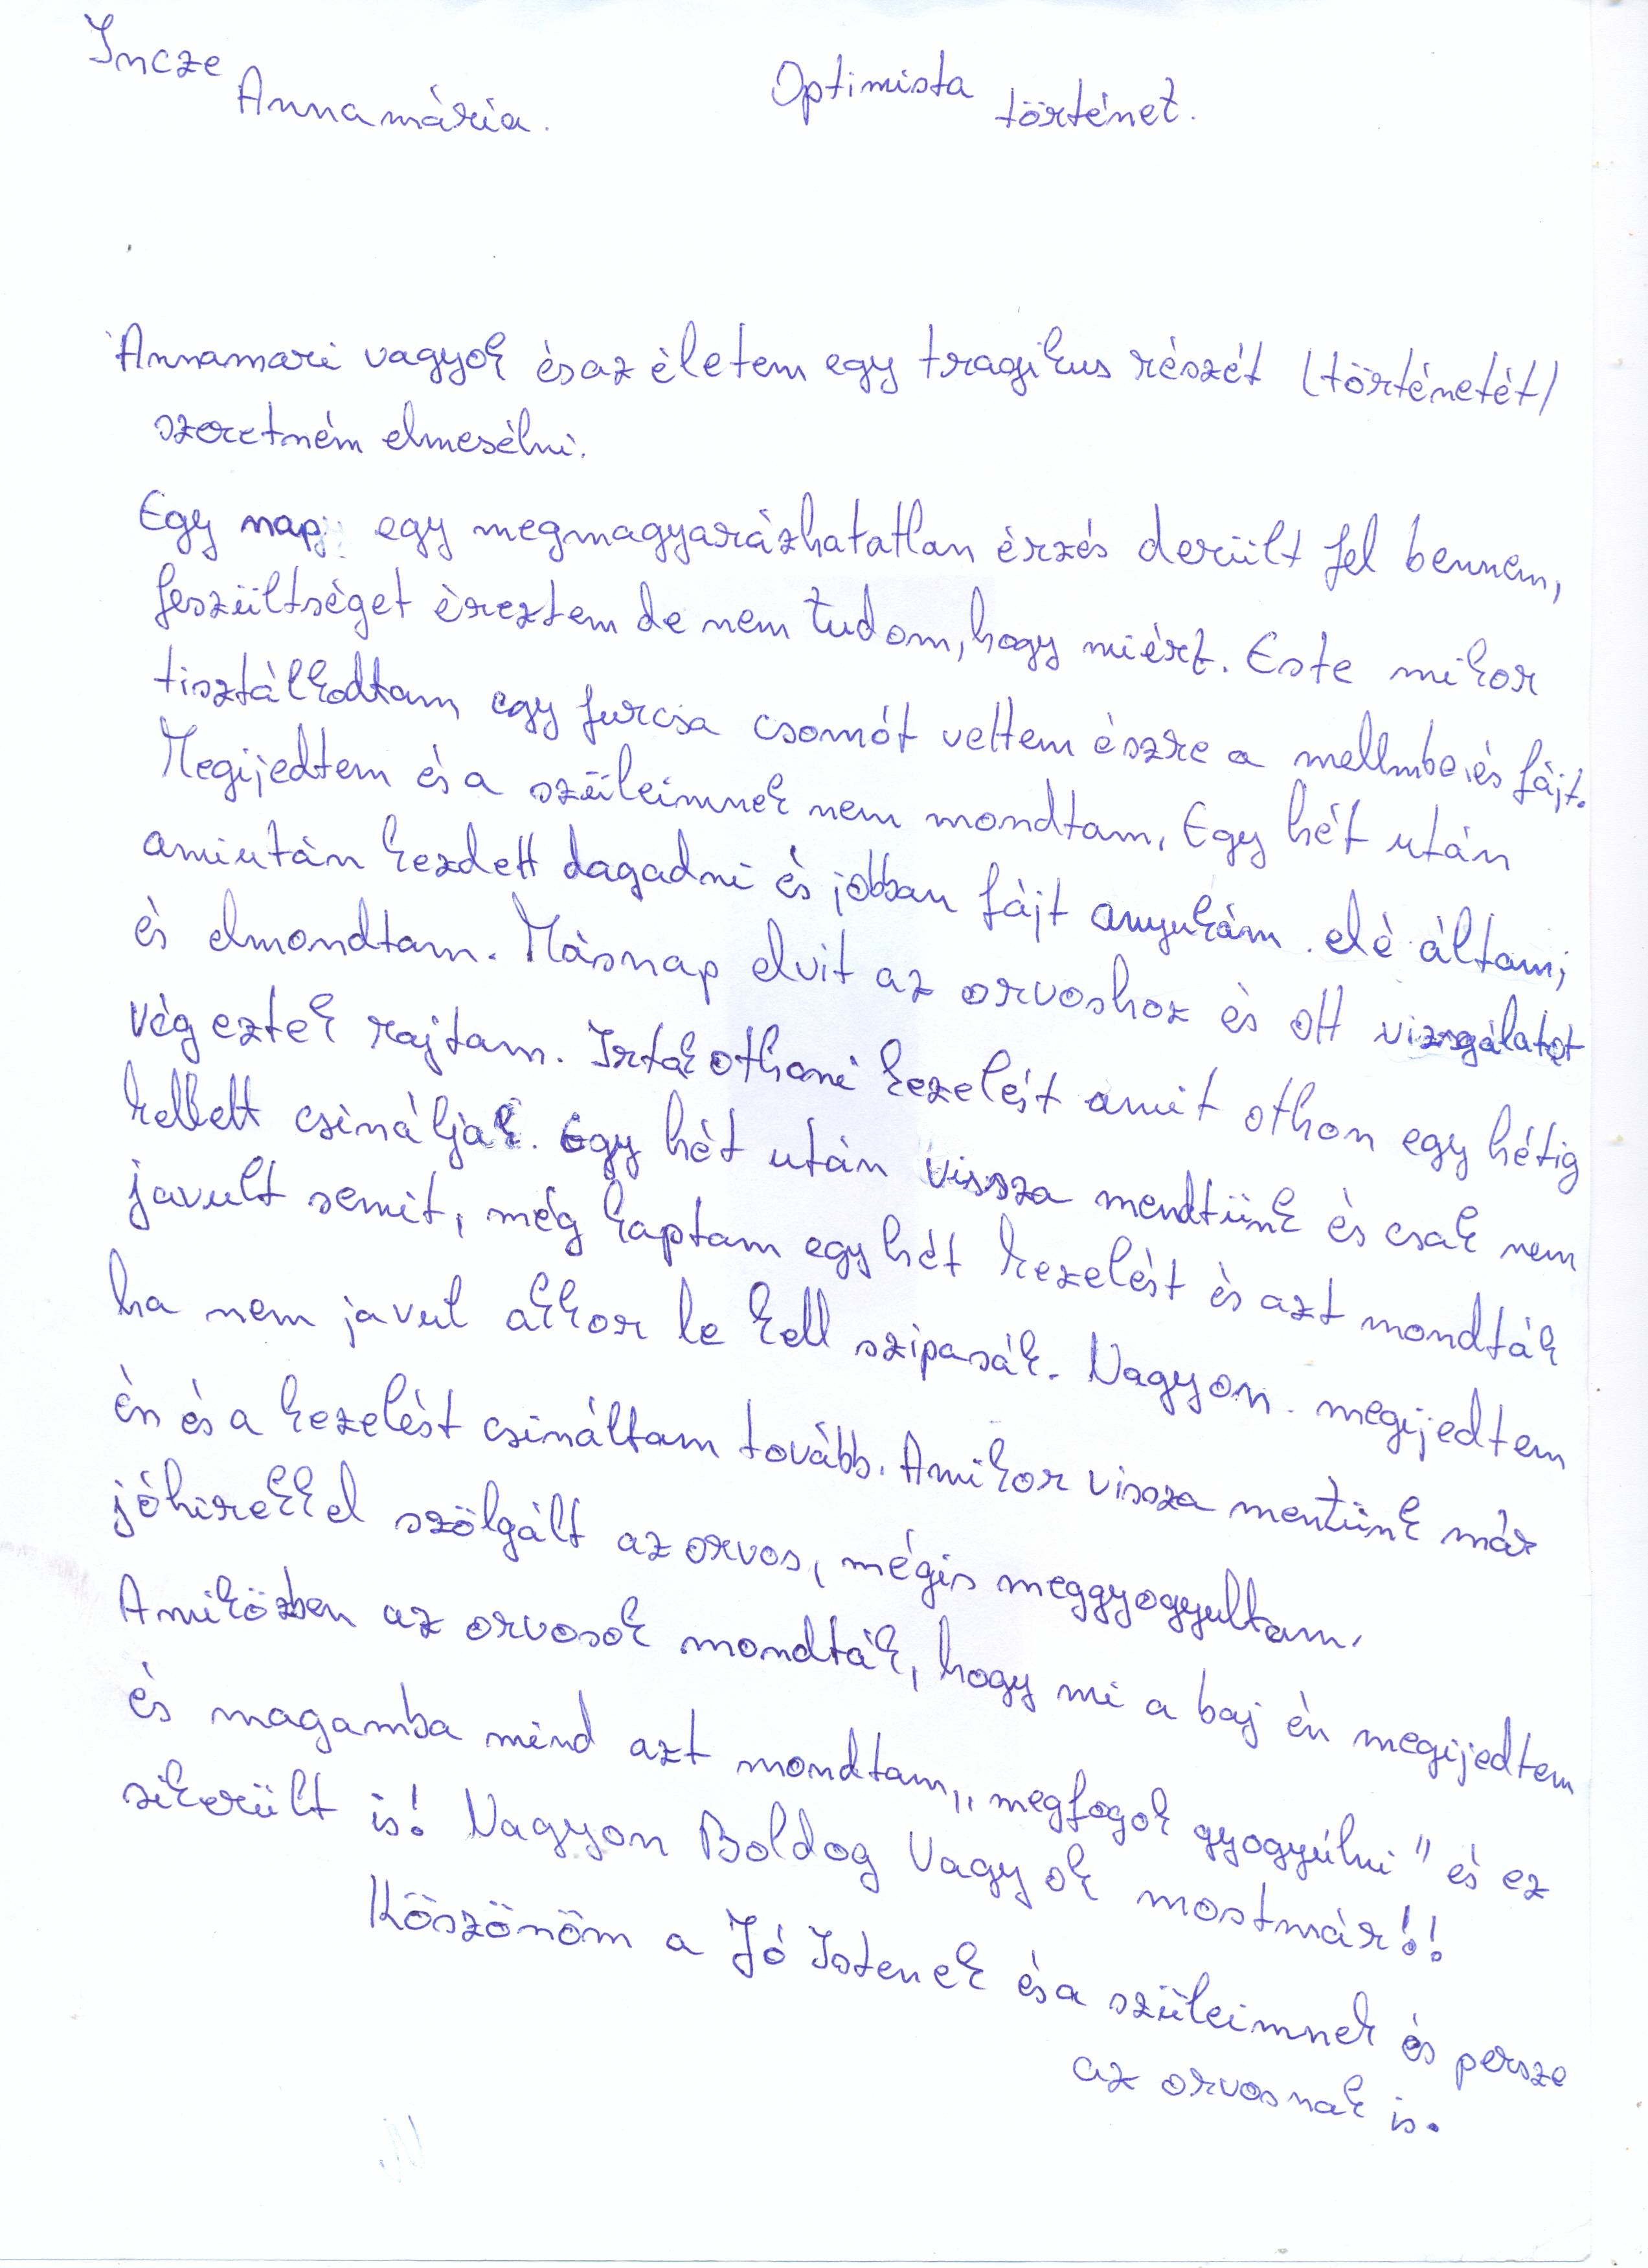 Incze Annamária. Optimista történet.
Annamari vagyok ésaz életem egy tragikus részét (történetét)
szeretném elmesélni.
Egy nap egy megmagyarázhatatlan érzés derült fel bennem,
feszültséget éreztem de nem tudom, hogy miért. Este mikor
tisztálkodtam egy furcsa csomót vettem észre a mellmbe és fájt.
Megijedtem és a szüleimnek nem mondtam. Egy hét után
amiután kezdett dagadni és jobban fájt anyukám elé áltam,
és elmondtam. Másnap elvit az orvoshoz és ott vizsgálatot
végeztek rajtam. Irtak othoni kezelést amit othon egy hétig
kellett csináljak. Egy hét után vissza mendtünk és csak nem
javult semit, még kaptam egy hét kezelést és azt mondták
ha nem javul akkor le kell szipasák. Nagyon megijedtem
én és a kezelést csináltam tovább. Amikor vissza mentünk már
jóhirekkel szólgált az orvos, mégis meggyogyultam.
Amiközben az orvosok mondták, hogy mi a baj én megijedtem
és magamba mind azt mondtam,„megfogok gyogyúlni" és ez
sikerült is! Nagyon Boldog Vagyok mostmár!!
Köszönöm a Jó Istenek ésa szüleimnek és persze
az orvosnak is.